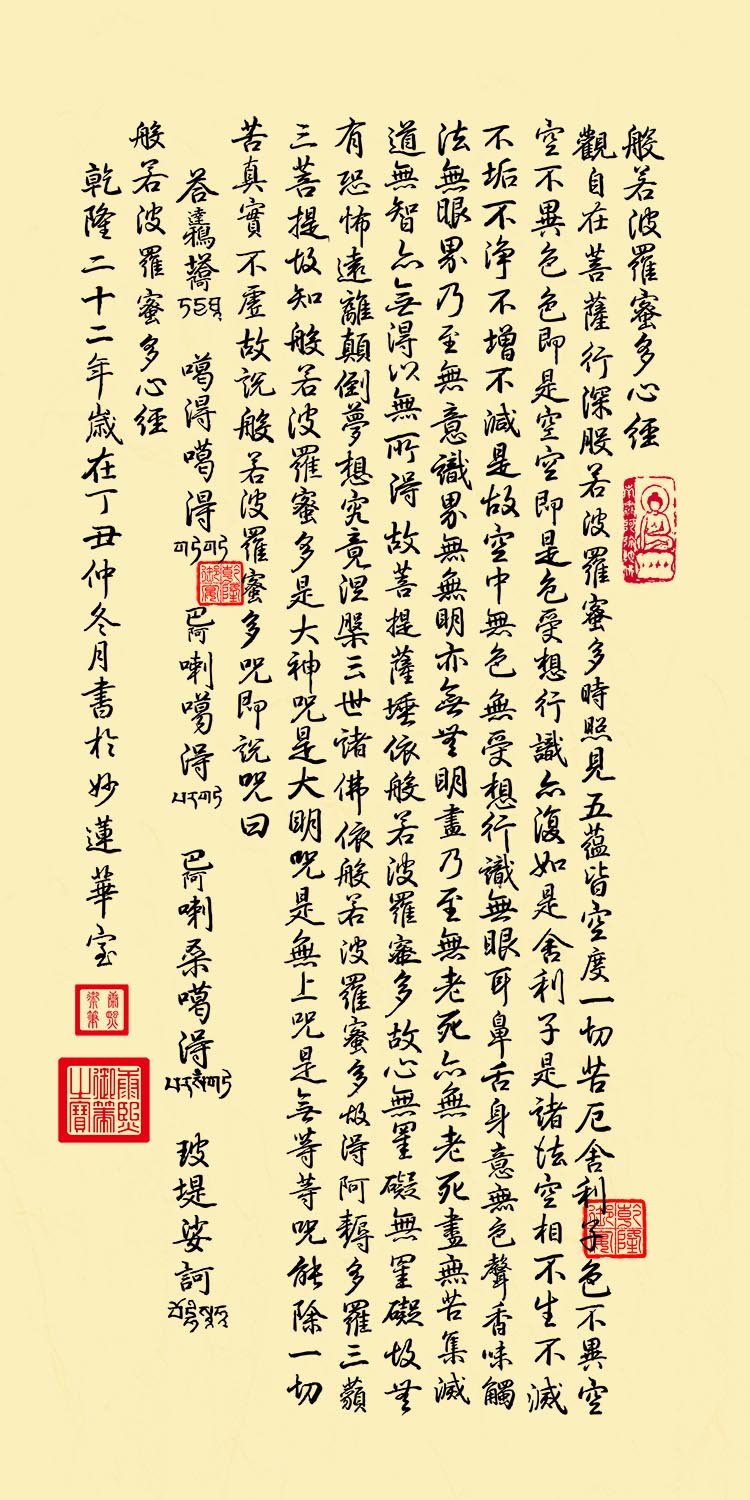 般若波羅蜜多心經
觀自在菩薩行深般若波羅蜜多時照見五蘊皆空度一切苦厄舍利子色不異空
空不異色色即是空空即是色受想行識亦復如是舍利子是諸法空相不生不滅
不垢不淨不增不減是故空中無色無受想行識無眼耳鼻舌身意無色聲香味觸
法無眼界乃至無意識界無無明亦無無明盡乃至無老死亦無老死盡無苦集滅
道無智亦無得以無所得故菩提薩埵依般若波羅蜜多故心無罣礙無罣礙故無
有恐怖遠離顛倒夢想究竟涅槃三世諸佛依般若波羅蜜多故得阿耨多羅三藐
三菩提故知般若波羅蜜多是大神咒是大明咒是無上咒是無等等咒能除一切
苦真實不虛故說般若波羅蜜多咒即說咒曰
答 噶得噶得 巴阿喇噶得 巴阿喇桑噶得 玻堤娑訶
般若波羅蜜多心經
乾隆二十二年歲在丁丑仲冬月書於妙蓮華室
康熙御筆
康熙御筆之寶